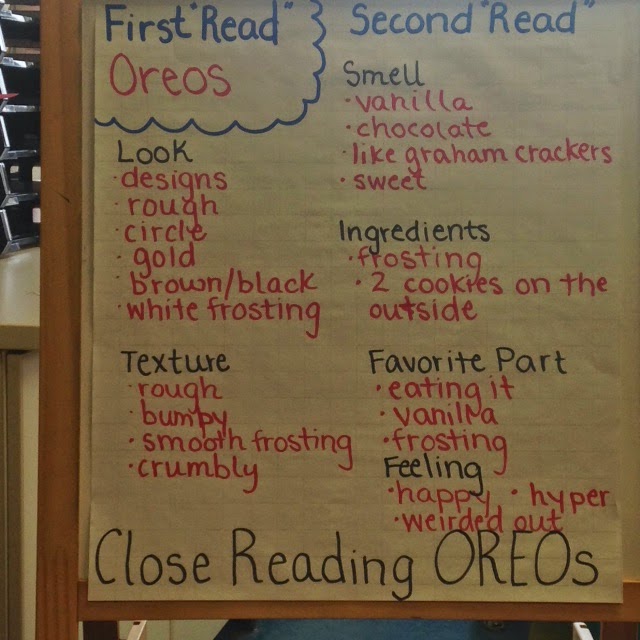 First "Read"
Oreos
Look
· designs
· rough
· circle
· gold
· brown/black
· white frosting
Texture
· rough
· bumpy
· smooth frosting
· crumbly
Second "Read"
Smell
· vanilla
· chocolate
· like graham crackers
· sweet
Ingredients
· frosting
· 2 cookies on the
outside
Favorite Part
· eating it
· vanilla
· frosting
Feeling
· happy · hyper
· weirded out
Close Reading OREOs